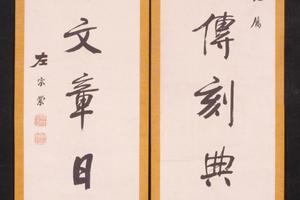 傳刻典
文章日
左宗棠